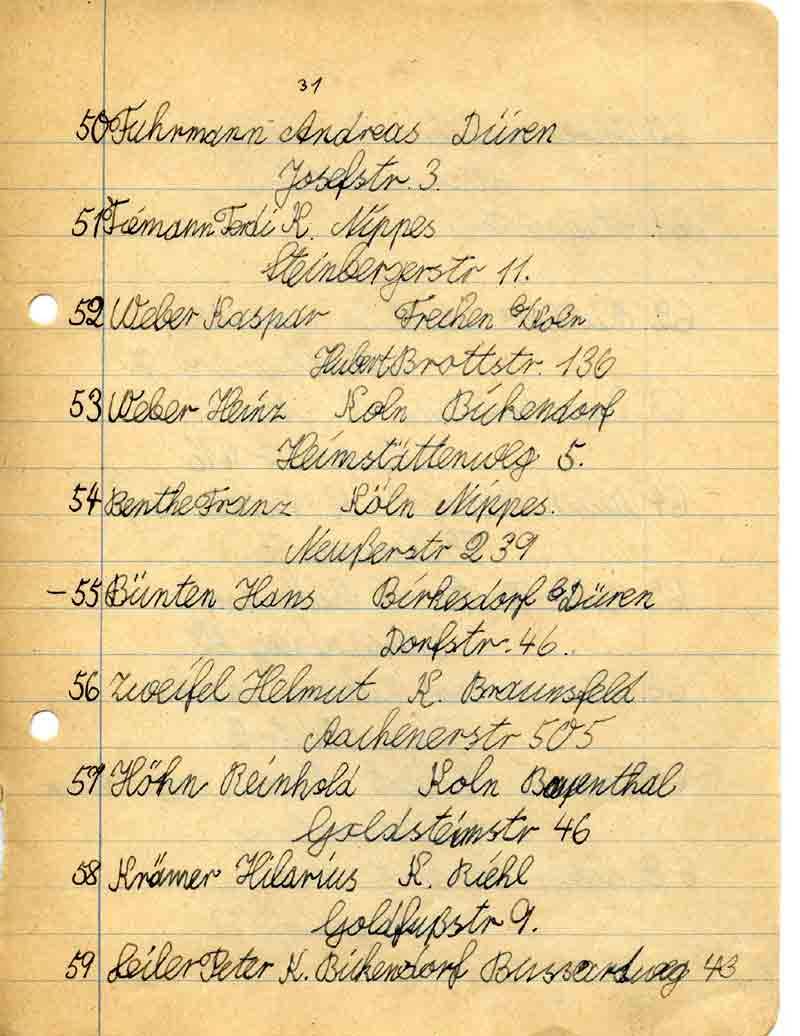 31
50 Fuhrmann Andreas Düren
Josefstr. 3.
51 Tiemann Ferdi K. Nippes
Steinbergerstr 11.
52 Weber Kaspar Frechen b/Koln
Hubert Brottstr. 136
53 Weber Heinz Koln Bickendorf
Heimstättenweg 5.
54 Benthe Franz Köln Nippes.
Neußerstr 239
- 55 Bünten Hans Birkesdorf b/Düren
Dorfstr. 46.
56 Zweifel Helmut K. Braunsfeld
Aachenerstr 505
57 Höhn Reinhold Koln Bayenthal
Goldsteinstr 46
58 Krämer Hilarius K. Riehl
Goldfußstr 9.
59 Seiler Peter K. Bickendorf Bussardweg 43